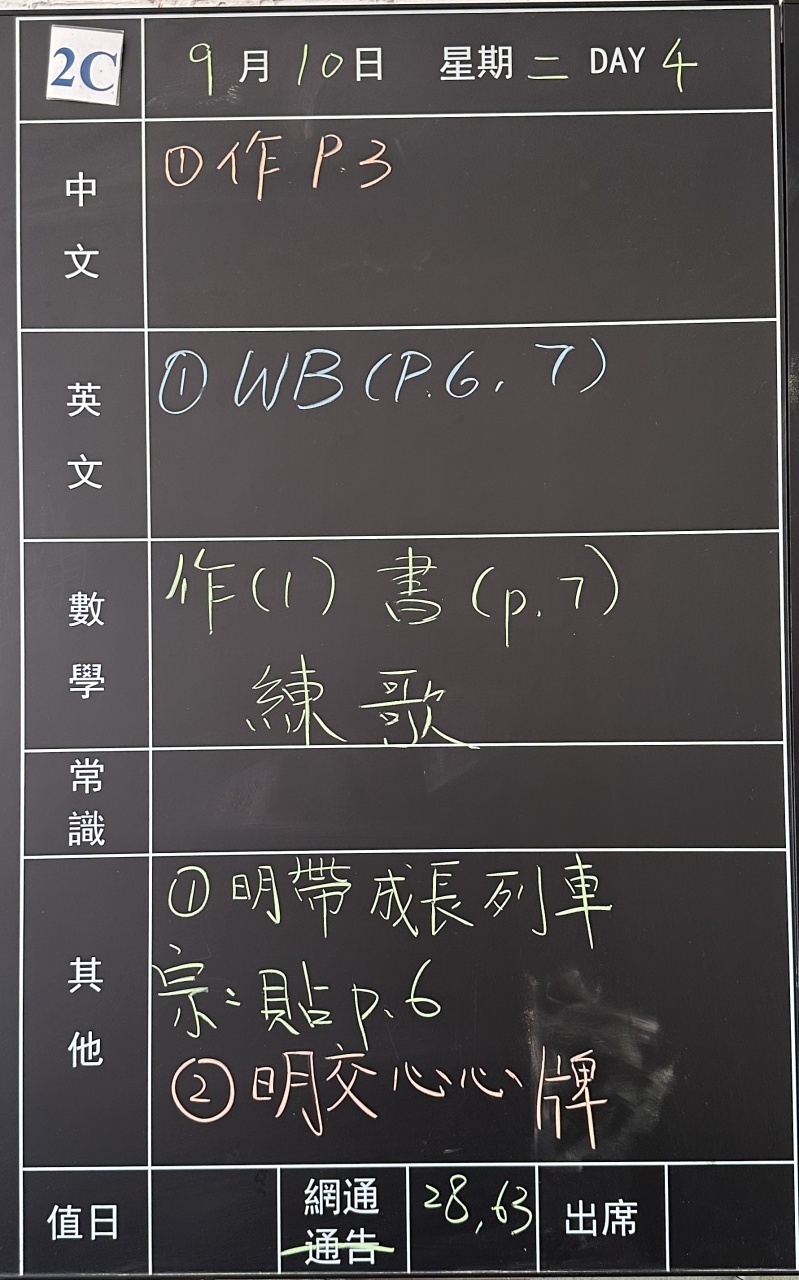 2C 9月10日 星期二 DAY 4
中文 ①作 P.3
英文 ①WB(P.6, 7)
數學 作(1) 書(p.7)
練歌
常識
其他 ①明帶成長列車
宗:貼p.6
②明交心心牌
值日 網通 28,63 出席
通告